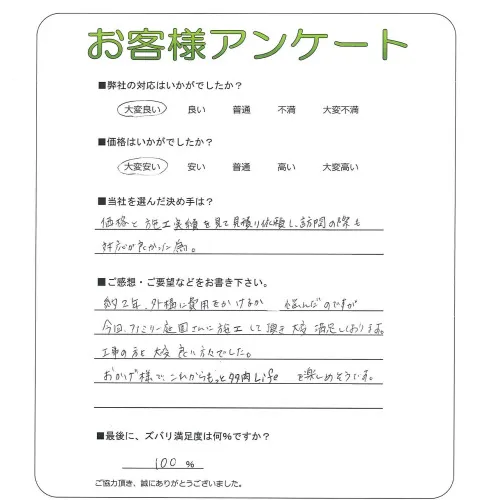 お客様アンケート
■弊社の対応はいかがでしたか？
大変良い 良い 普通 不満 大変不満
■価格はいかがでしたか？
大変安い 安い 普通 高い 大変高い
■当社を選んだ決め手は？
価格と施工実績を見て見積り依頼し、訪問の際も
対応が良かった為。
■ご感想・ご要望などをお書き下さい。
約2年、外構に費用をかけるか 悩んだのですが
今回、ファミリー庭園さんに施工して頂き大変満足しております。
工事の方も大変良い方々でした。
おかげ様で、これからもっと多肉Lifeを楽しめそうです。
■最後に、ズバリ満足度は何％ですか？
100 %
ご協力頂き、誠にありがとうございました。